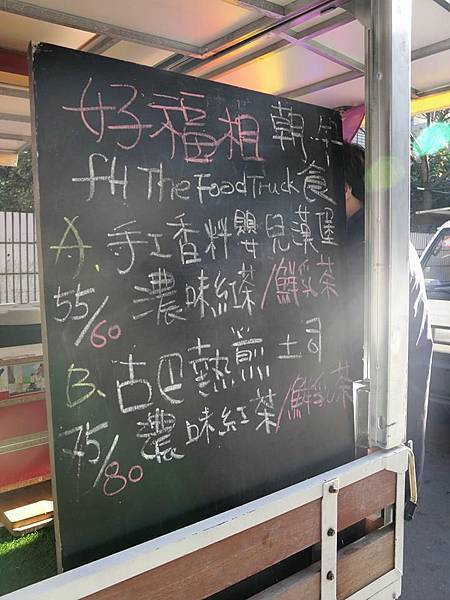 好福祖 朝早
fH The Food Truck 食
A. 手工香料嬰兒漢堡
55/60 濃味紅茶/鮮乳茶
B. 古巴熱煎土司
75/80 濃味紅茶/鮮乳茶